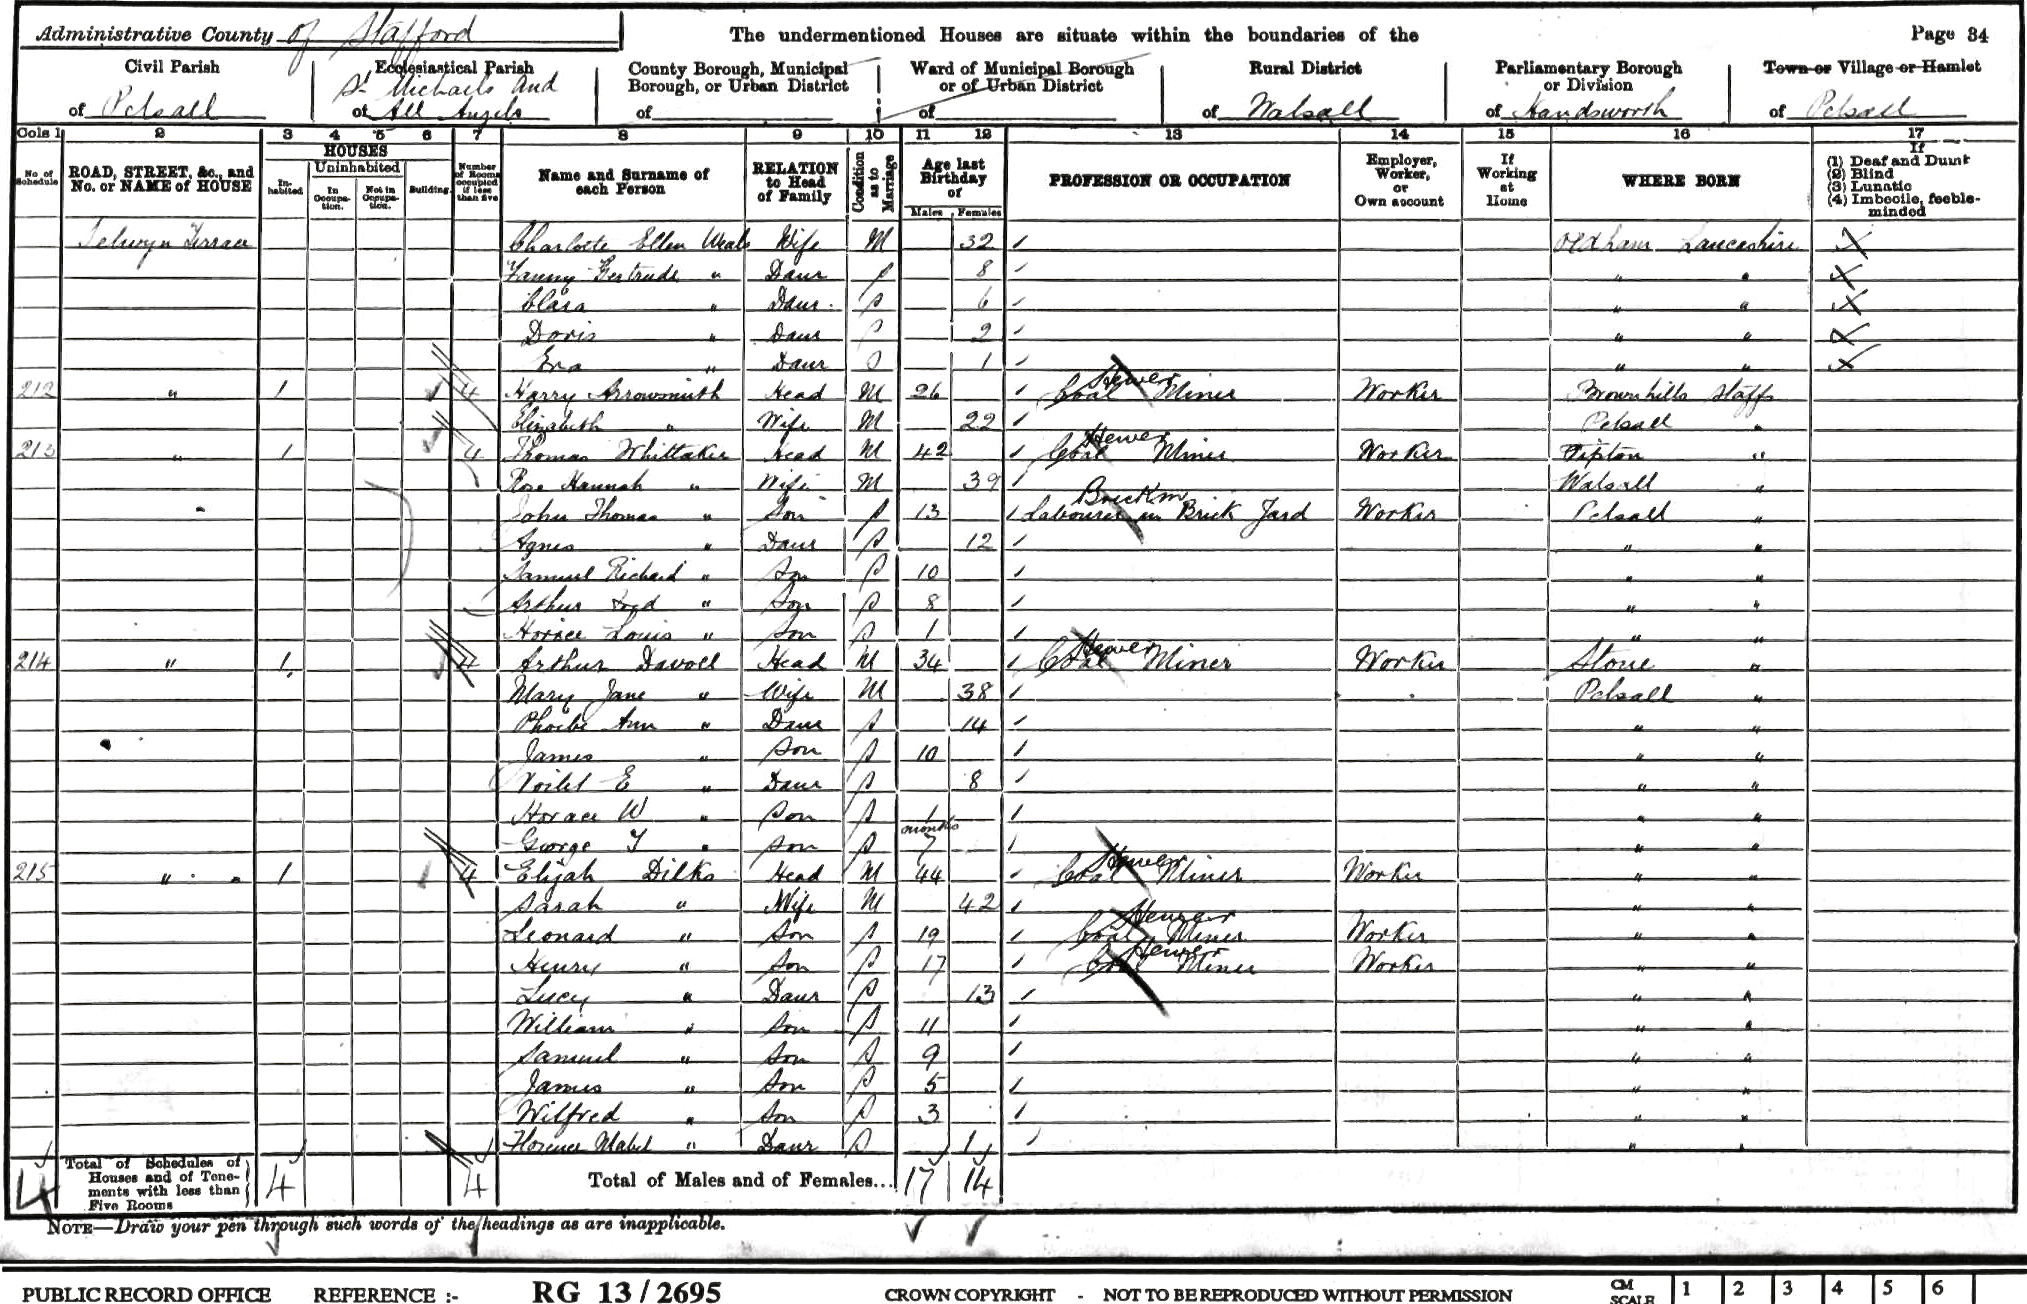 Administrative County of Stafford
The undermentioned Houses are situate within the boundaries of the
Page 34
Civil Parish
of Pelsall
Ecclesiastical Parish
of St Michaels and All Angels
County Borough, Municipal Borough, or Urban District
of
Ward of Municipal Borough or of Urban District
of
Rural District
of Walsall
Parliamentary Borough or Division
of Handsworth
Town or Village or Hamlet
of Pelsall
Cols 1 2 3 4 5 6 7 8 9 10 11 12 13 14 15 16 17
No. of Schedule
ROAD, STREET, &c., and No. or NAME of HOUSE
HOUSES
Inhabited
Uninhabited
In Occupation.
Not in Occupation.
Building.
Number of Rooms occupied if less than five
Name and Surname of each Person
RELATION to Head of Family
Condition as to Marriage
Age last Birthday of
Males Females
PROFESSION OR OCCUPATION
Employer, Worker, or Own account
If Working at Home
WHERE BORN
If
(1) Deaf and Dumb
(2) Blind
(3) Lunatic
(4) Imbecile, feeble-minded
Selwyn Terrace Charlotte Ellen Weals Wife M 32 Oldham Lancashire X
Fanny Gertrude " Daur S 8 " " X
Clara " Daur S 6 " " X
Doris " Daur S 2 " " X
Eva " Daur S 1 " " X
212 " 1 4 Harry Arrowsmith Head M 26 Coal Hewer Miner Worker Brownhills Staffs
Elizabeth " Wife M 22 Pelsall "
213 " 1 4 Thomas Whittaker Head M 42 Coal Hewer Miner Worker Tipton "
Rose Hannah " Wife M 39 Walsall "
John Thomas " Son S 13 Brickm Labourer in Brick Yard Worker Pelsall "
Agnes " Daur S 12 " "
Samuel Richard " Son S 10 " "
Arthur " Son S 8 " "
Horace Louis " Son S 1 " "
214 " 1 4 Arthur Davoll Head M 34 Coal Hewer Miner Worker Stone "
Mary Jane " Wife M 38 Pelsall "
Phoebe Ann " Daur S 14 " "
James " Son S 10 " "
Voilet E " Daur S 8 " "
Horace W " Son S 1 " "
George T " Son S 7 months " "
215 " 1 4 Elijah Dilks Head M 44 Coal Hewer Miner Worker " "
Sarah " Wife M 42 " "
Leonard " Son S 19 Coal Hewer Miner Worker " "
Henry " Son S 17 Coal Hewer Miner Worker " "
Lucy " Daur S 13 " "
William " Son S 11 " "
Samuel " Son S 9 " "
James " Son S 5 " "
Wilfred " Son S 3 " "
Florence Mabel " Daur S 1 " "
4 Total of Schedules of Houses and of Tenements with less than Five Rooms 4 4 Total of Males and of Females... 17 14
NOTE—Draw your pen through such words of the headings as are inapplicable.
PUBLIC RECORD OFFICE REFERENCE :- RG 13/2695 CROWN COPYRIGHT - NOT TO BE REPRODUCED WITHOUT PERMISSION CM SCALE 1 2 3 4 5 6